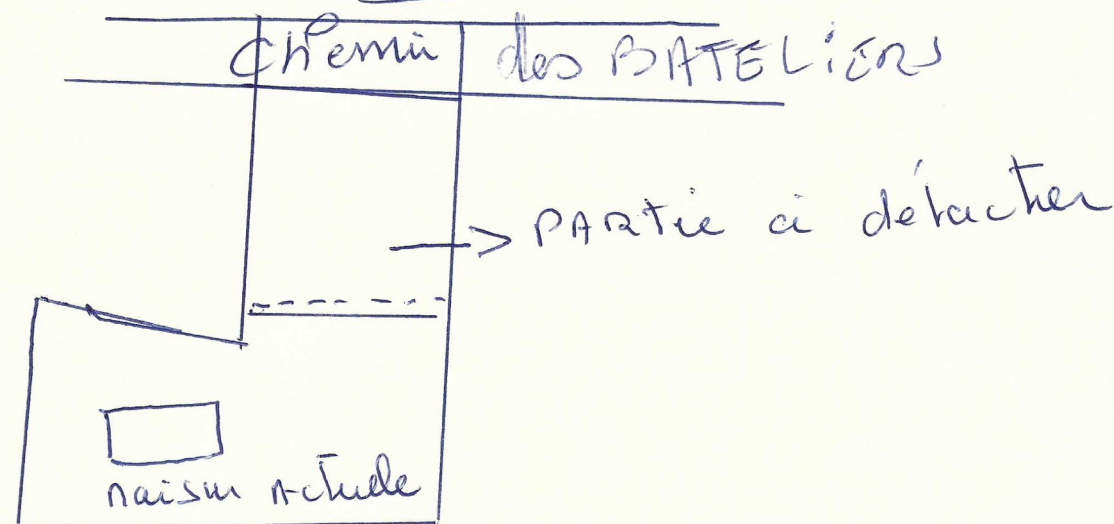 Chemin des BATELiERS
PARTie à détacher
Maison Actuelle